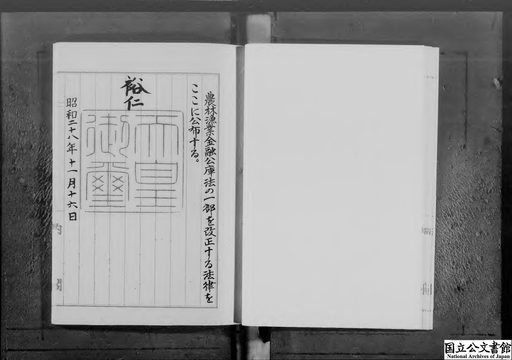 農林漁業金融公庫法の一部を改正する法律を
ここに公布する。
裕仁
天皇
御璽
昭和二十八年十一月十六日
国立公文書館
National Archives of Japan